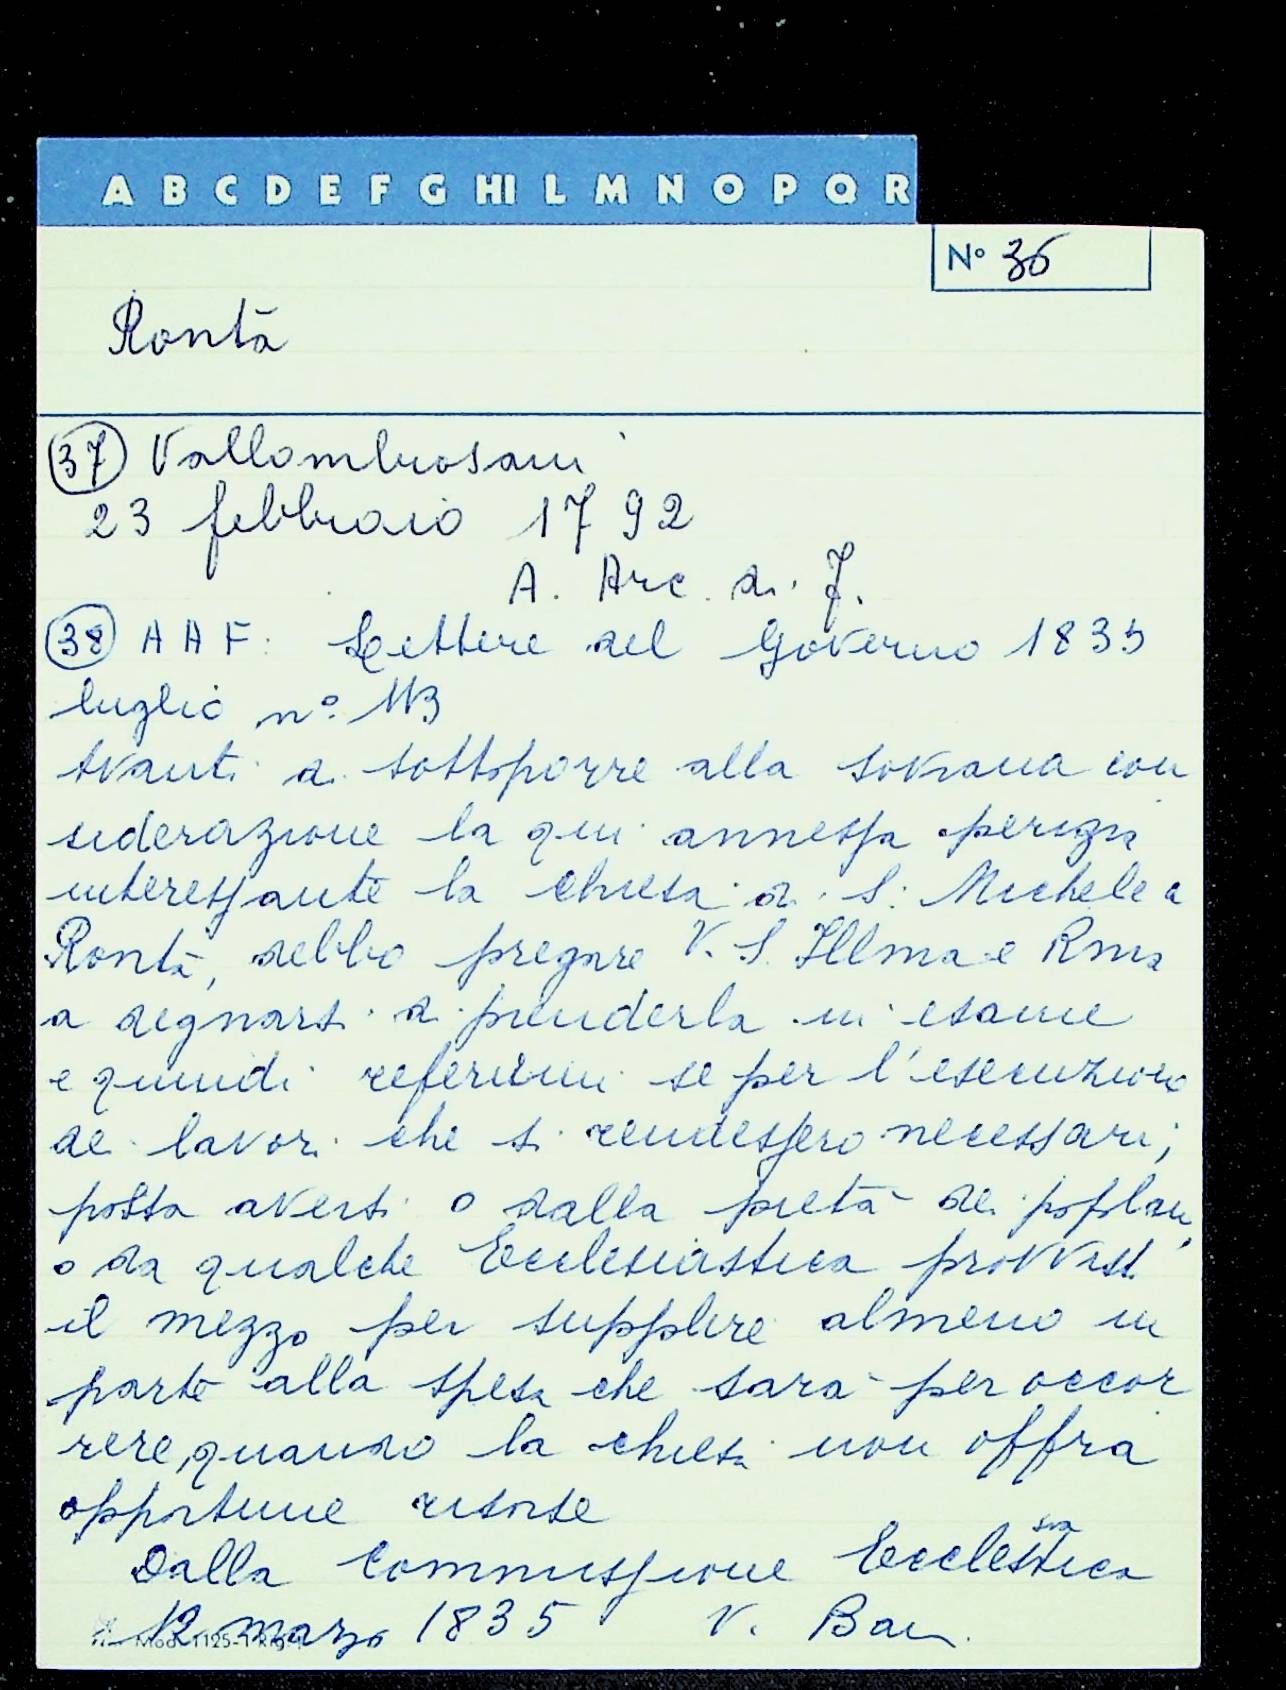 A B C D E F G HI L M N O P Q R
N° 36
Rontà
37 Vallombrosani
23 febbraio 1792
A. Arc. di. F.
38 A A F: Lettere del Governo 1835
luglio n°. 113
Avanti di sottoporre alla sovrana con
siderazione la qui annessa perizia
interessante la chiesa di S. Michele a
Rontà, debbo pregare V. S. Illma e Rma
a degnarsi di prenderla in esame
e quindi referirmi se per l'esecuzione
dei lavori che si rendessero necessari;
possa aversi o dalla pietà dei popolani,
o da qualche Ecclesiastica provvista
il mezzo per supplire almeno in
parte alla spesa che sarà per occor
rere, quando la chiesa non offra
opportune risorse
Dalla Commissione Ecclestica
sia
12 marzo 1835 V. Bani.
Mod. 1125-1 Rig.